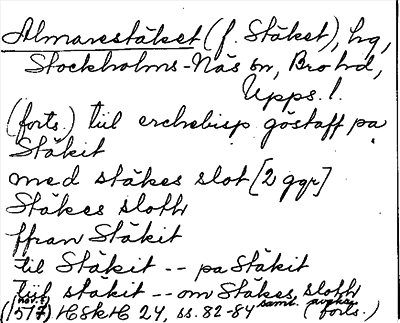 Almarestäket (f. Stäket), hg,
Stockholms-Näs sn, Bro hd,
Upps. l.
(forts.) tiil erchebisp göstaff pa
Stäkit
med stäkes slot [2 ggr]
Stäkes sloth
ffran Stäkit
til Stäkit -- pa Stäkit
tiil stäkit -- om Stäkes sloth
(1517) HSkH 24, ss. 82-84 samt. (forts.)